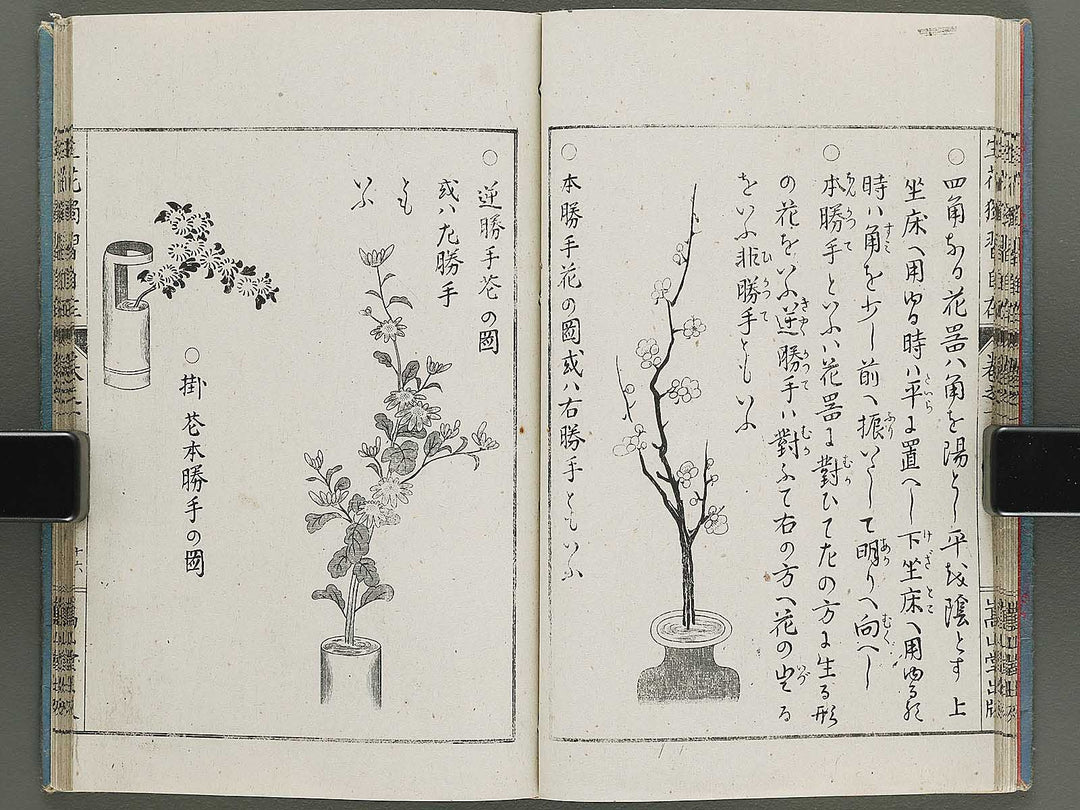 ○四角なる花器ハ角を陽とし平を陰とす 上
坐床へ用ゆる時ハ平に置へし下坐床へ用ゆる
時ハ角を少し前へ振いたして明りへ向へし
○本勝手といふハ花器に對ひて左の方に生る形
の花をいふ逆勝手ハ對ふて右の方へ花の出る
をいふ非勝手ともいふ
○本勝手花の圖或ハ右勝手ともいふ
嵩山堂出版
○逆勝手花の圖
或ハ左勝手
とも
いふ
○掛花本勝手の圖